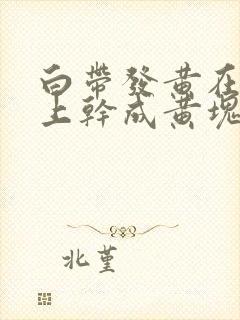 白帶發黃在
上幹成黃塊
北堇